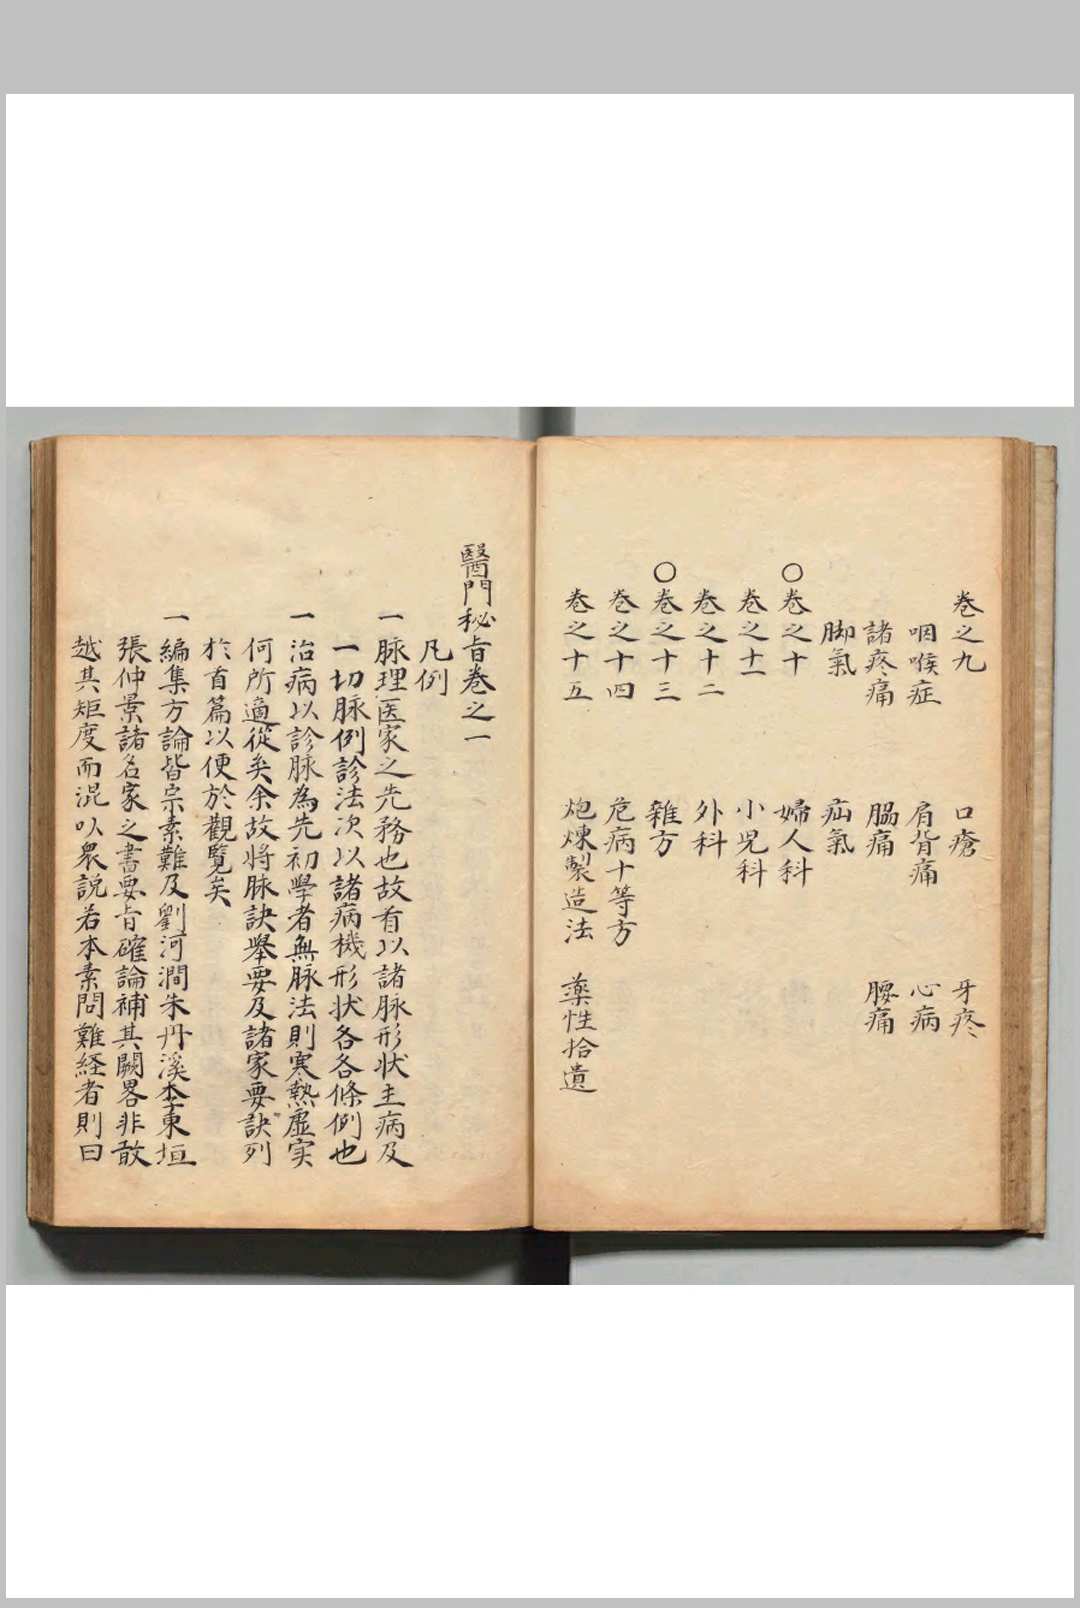 卷之九　口瘡　牙疼
咽喉症　肩背痛　心病
諸疼痛　脇痛　腰痛
脚氣　疝氣
○卷之十　婦人科
卷之十一　小児科
卷之十二　外科
○卷之十三　雜方
卷之十四　危病十等方
卷之十五　炮煉製造法　藥性拾遺
醫門秘旨卷之一
凡例
一脉理医家之先務也故首以諸脉形状主病及
一切脉例診法次以諸病機形状各各條例也
一治病以診脉為先初學者無脉法則寒熱虛实
何所適從矣余故将脉訣舉要及諸家要訣列
於首篇以便於觀覽矣
一編集方論皆宗素難及劉河澗朱丹溪李東垣
張仲景諸名家之書要旨確論補其闕畧非敢
越其矩度而混以衆説若本素問難経者則曰